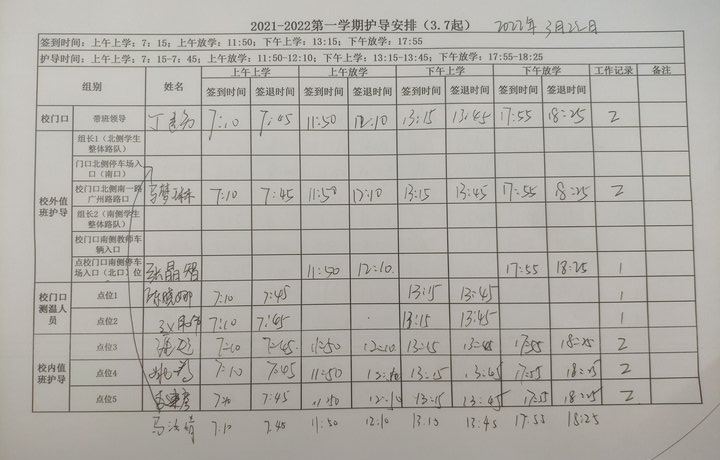 2021-2022第一学期护导安排（3.7起） 2022年3月 日
签到时间：上午上学：7：15；上午放学：11:50；下午上学：13:15；下午放学：17:55
护导时间：上午上学：7：15-7：45；上午放学：11:50-12:10；下午上学：13:15-13:45；下午放学：17:55-18:25
组别 姓名 上午上学 上午放学 下午上学 下午放学 工作记录 备注
签到时间 签退时间 签到时间 签退时间 签到时间 签退时间 签到时间 签退时间
校门口 带班领导 丁 7:10 7:45 11:50 12:10 13:15 13:45 17:55 18:25 2
校外值班护导
组长1（北侧学生
整体路队）
门口北侧停车场入
口（南口）
校门口北侧南一路
广州路路口 7:10 7:45 11:50 12:10 13:15 13:45 17:55 18:25 2
组长2（南侧学生
整体路队）
校门口南侧教师车
辆入口
点校门口南侧停车
场入口（北口）位 张晶智 11:50 12:10. 17:55 18:25 1
校门口测温人员
点位1 陈晓娜 7:10 7:45 13:15 13:45 1
点位2 7:10 7:45 13:15 13:45 1
校内值班护导
点位3 7:10 7:45. 11:50 12:10 13:15 13:45 17:55 18:25 2
点位4 7:10 7:45 11:50 12:10 13:15 13:45 17:55 18:25 2
点位5 7:10 7:45 11:50 12:10 13:15 13:45 17:55 18:25 2
马 7:10 7:45 11:50 12:10 13:15 13:45 17:55 18:25